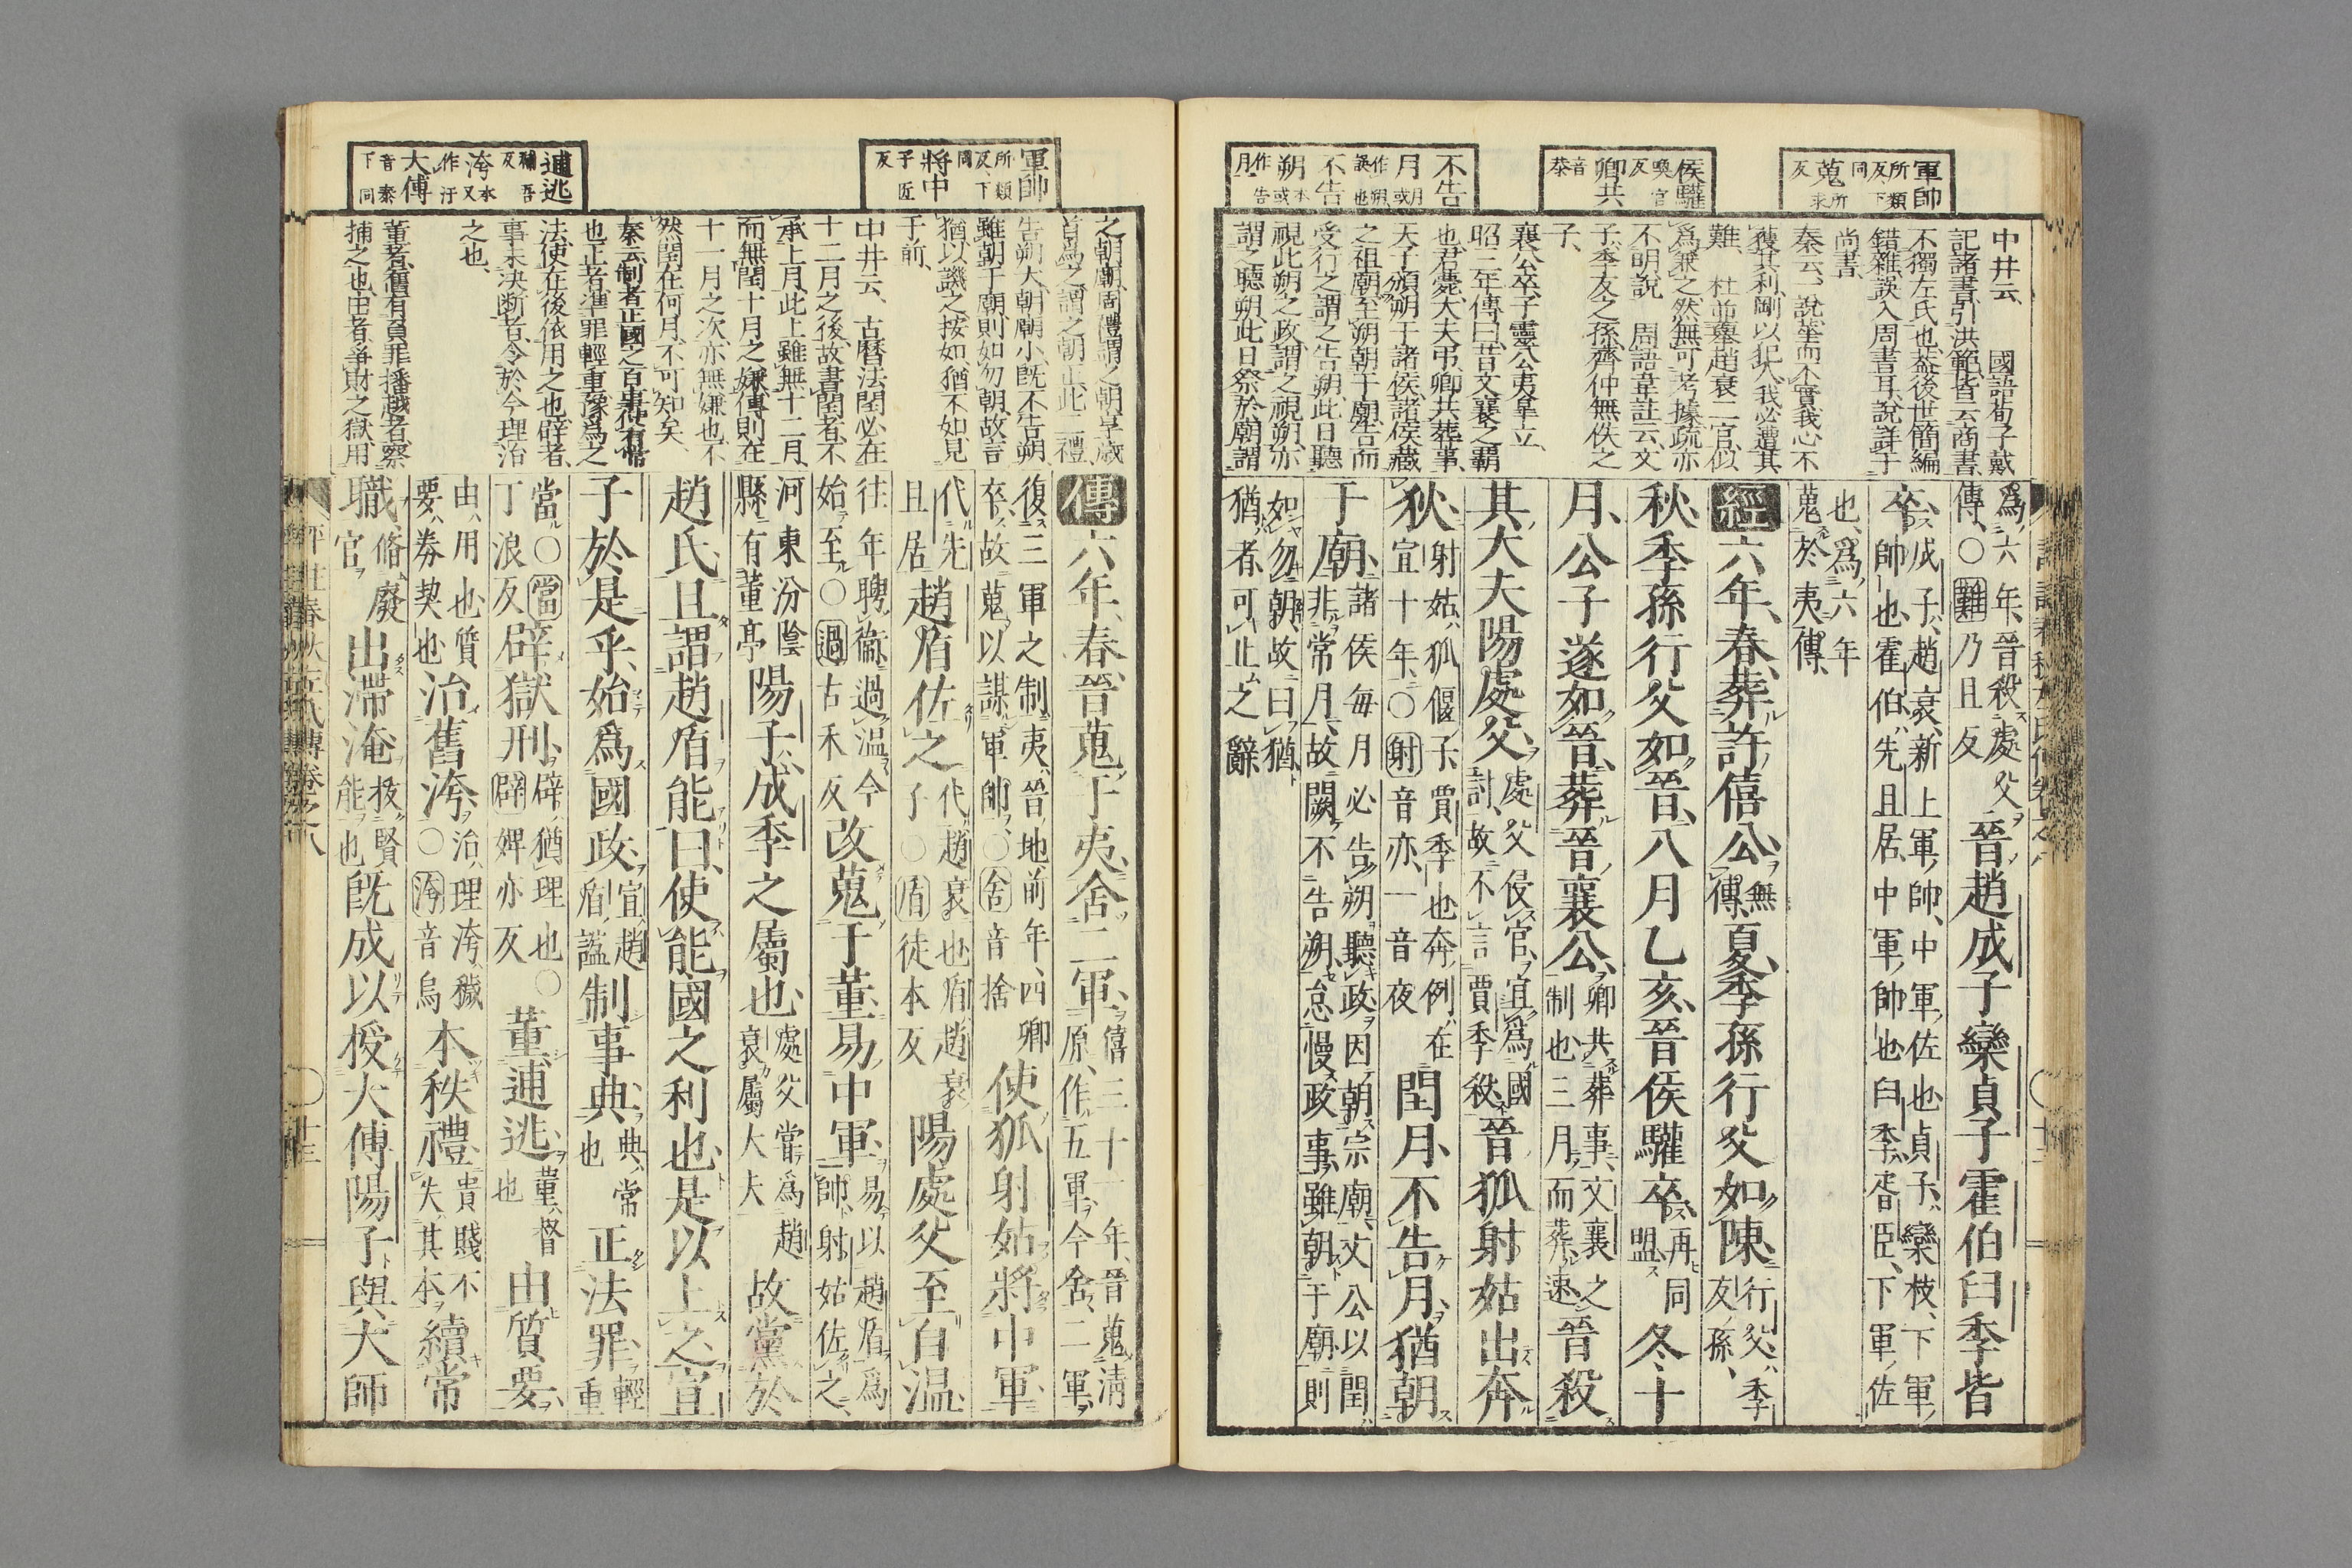 軍帥
所類反下同
蒐
所求反
侯驩
喚官反
卿共
音恭
不告月
月或作朔誤也
不告朔
本或作告月
中井云、國語荀子戴
記諸書引洪範、皆云商書、
不獨左氏也、蓋後世簡編
錯雜、誤入周書耳、說詳于
尚書、
秦云、一說、華而不實、我心不
獲其利、剛以犯人、我必遭其
難、 杜並舉趙衰二官、似
爲兼之、然無可考據、疏亦
不明說 周語韋註云、文
子、季友之孫、齊仲無佚之
子、
襄公卒、子靈公夷皐立、
昭三年傳曰、昔文襄之霸
也、君薨、大夫弔、卿共葬事、
天子頒朔于諸侯、諸侯藏
之祖廟、至朔朝于廟、告而
受行之、謂之告朔、此日聽
視此朔之政、謂之視朔、亦
謂之聽朔、此日祭於廟、謂
爲六年、晉殺處父
傳、〇難乃旦反
晉趙成子欒貞子霍伯臼季皆
卒、成子、趙衰、新上軍帥、中軍佐也、貞子、欒枝、下軍
帥也、霍伯、先且居、中軍帥也、臼季、胥臣、下軍佐
也、爲六年
蒐於夷傳、
經六年、春、葬許僖公、無傳、夏、季孫行父如陳、行父、季友孫、
秋、季孫行父如晉、八月乙亥、晉侯驩卒、再同盟、冬、十
月、公子遂如晉、葬晉襄公、卿共葬事、文襄之制也、三月而葬、速、晉殺
其大夫陽處父、處父侵官、宜爲國討、故不言賈季殺、晉狐射姑出奔
狄、射姑、狐偃子、賈季也、奔例在宣十年、〇射音亦、一音夜
閏月、不告月、猶朝
于廟、諸侯每月必告朔聽政、因朝宗廟、文公以閏非常月、故闕不告朔、怠慢政事、雖朝于廟、則
如勿朝、故曰猶、
猶者、可止之辭
軍帥
所類反下同
將中
子匠反
逋逃
補吾反
洿
水又作汙
大傅
音泰下同
之朝廟、周禮謂之朝享、歲
首爲之、謂之朝正、此二禮、
告朔大、朝廟小、既不告朔、
雖朝于廟、則如勿朝、故言
猶以譏之、按如猶不如、見
于前、
中井云、古曆法、閏必在
十二月之後、故書閏者、不
承上月、此上雖無十二月、
而無閏十月之嫌、傳則在
十一月之次、亦無嫌也、不
然、閏在何月、不可知矣、
秦云、制者、正國之百事、使有常
也、正者、準罪輕重、豫爲之
法、使在後依用之也、辟者、
事未決斷者、今於今理治
之也、
董者、舊有負罪播越者、察
捕之也、由者、爭財之獄、用
傳六年、春、晉蒐于夷、舍二軍、僖三十一年、晉蒐淸原、作五軍、今舍二軍、
復三軍之制、夷、晉地、前年、四卿
卒、故蒐以謀軍帥、〇舍音捨
使狐射姑將中軍、
代先且居、趙盾佐之、代趙衰也、盾、趙衰子〇盾徒本反
陽處父至自溫、
往年聘衞過溫、今
始至、〇過古禾反
改蒐于董、易中軍、易以趙盾爲帥、射姑佐之、
河東汾陰
縣有董亭
陽子、成季之屬也、處父嘗爲趙衰屬大夫、
故黨於
趙氏、且謂趙盾能、曰、使能、國之利也、是以上之、宣
子於是乎始爲國政、宣、趙盾謚、制事典、典、常也、正法罪、輕重
當、〇當丁浪反、辟獄刑、辟、猶理也、〇辟婢亦反、董逋逃、董、督也、由質要、
由、用也、質
要、券契也
治舊洿、治、理洿穢、〇洿音烏、本秩禮、貴賤不失其本、續常
職、脩廢官、出滯淹、拔賢能也、既成以授大傅陽子與大師
評註春秋左氏傳卷之八